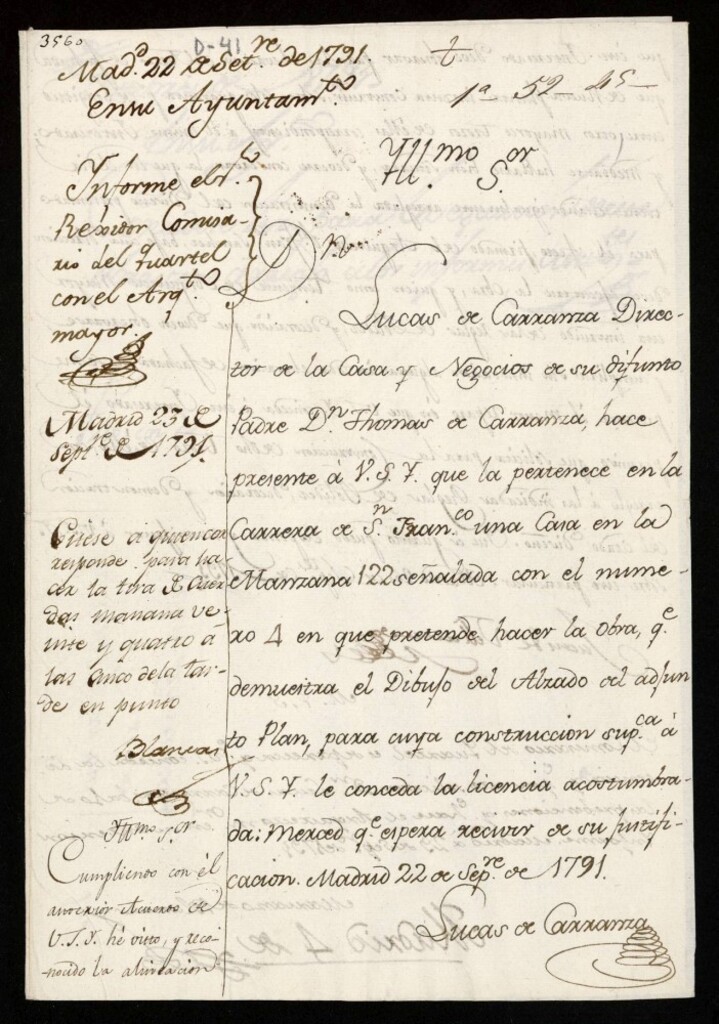 3560
D-41
Mad.d 22 de Set.re de 1791.
En su Ayuntam.to
t
1ª 52 45
Informe el S.r
Rexidor Comisa-
rio del Quartel
con el Arq.to
mayor.
Madrid 23 de
Sept.e de 1791.
Citese a quien cor
responde para ha-
cer la tira de Cuer
das mañana ve-
inte y quatro á
las Cinco de la tar-
de en punto
Blancas
Yllmo. S.or
Cumpliendo con él
anterior Acuerdo de
V.S.Y. hé visto, y reco-
nocido la alineacion
Yll.mo S.or
Lucas de Carranza Direc-
tor de la Casa y Negocios de su difunto
Padre D.n Thomas de Carranza, hace
presente á V.S.Y. que la pertenece en la
Carrera de S.n Fran.co una Casa en la
Manzana 122 señalada con el nume-
ro 4 en que pretende hacer la Obra, q.e
demuestra el Dibujo del Alzado del adjun
to Plan, para cuya construccion sup.ca á
V.S.Y. le conceda la licencia acostumbra-
da: Merced q.e espera recivir de su Justifi-
cacion. Madrid 22 de Sep.re de 1791.
Lucas de Carranza